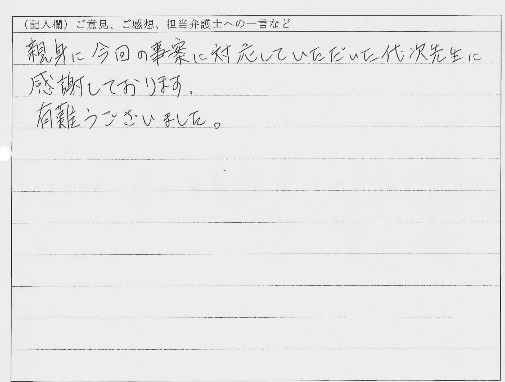 （記入欄）ご意見、ご感想、担当弁護士への一言など
親身に今回の事案に対応していただいた代次先生に
感謝しております。
有難うございました。